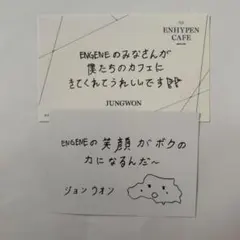 ENHYPEN
CAFE
ENGENEのみなさんが
僕たちのカフェに
きてくれてうれしいです
JUNGWON
ENGENEの笑顔がボクの
力になるんだ〜
ジョンウォン